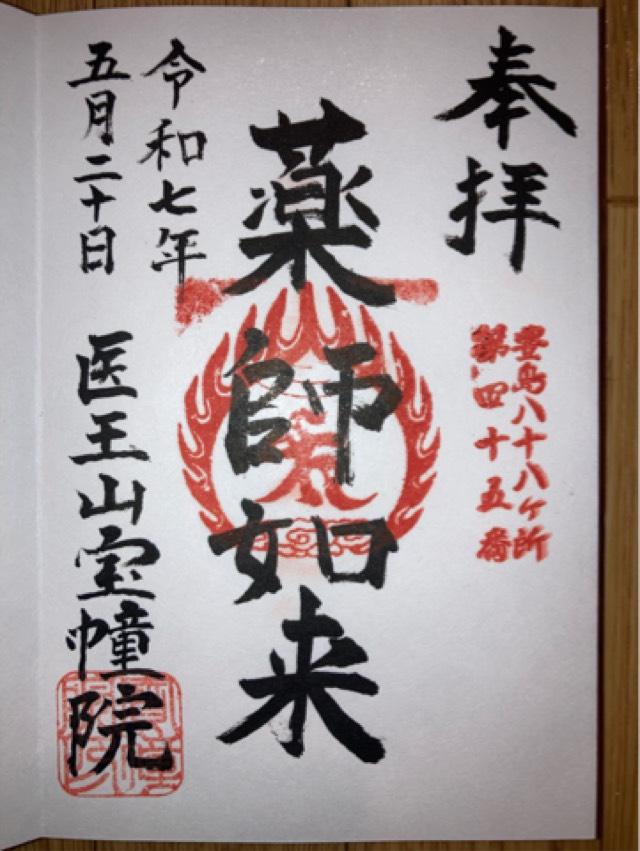 奉拝
豊島八十八ヶ所
第四十五番
薬師如来
令和七年
五月二十日
医王山宝幢院